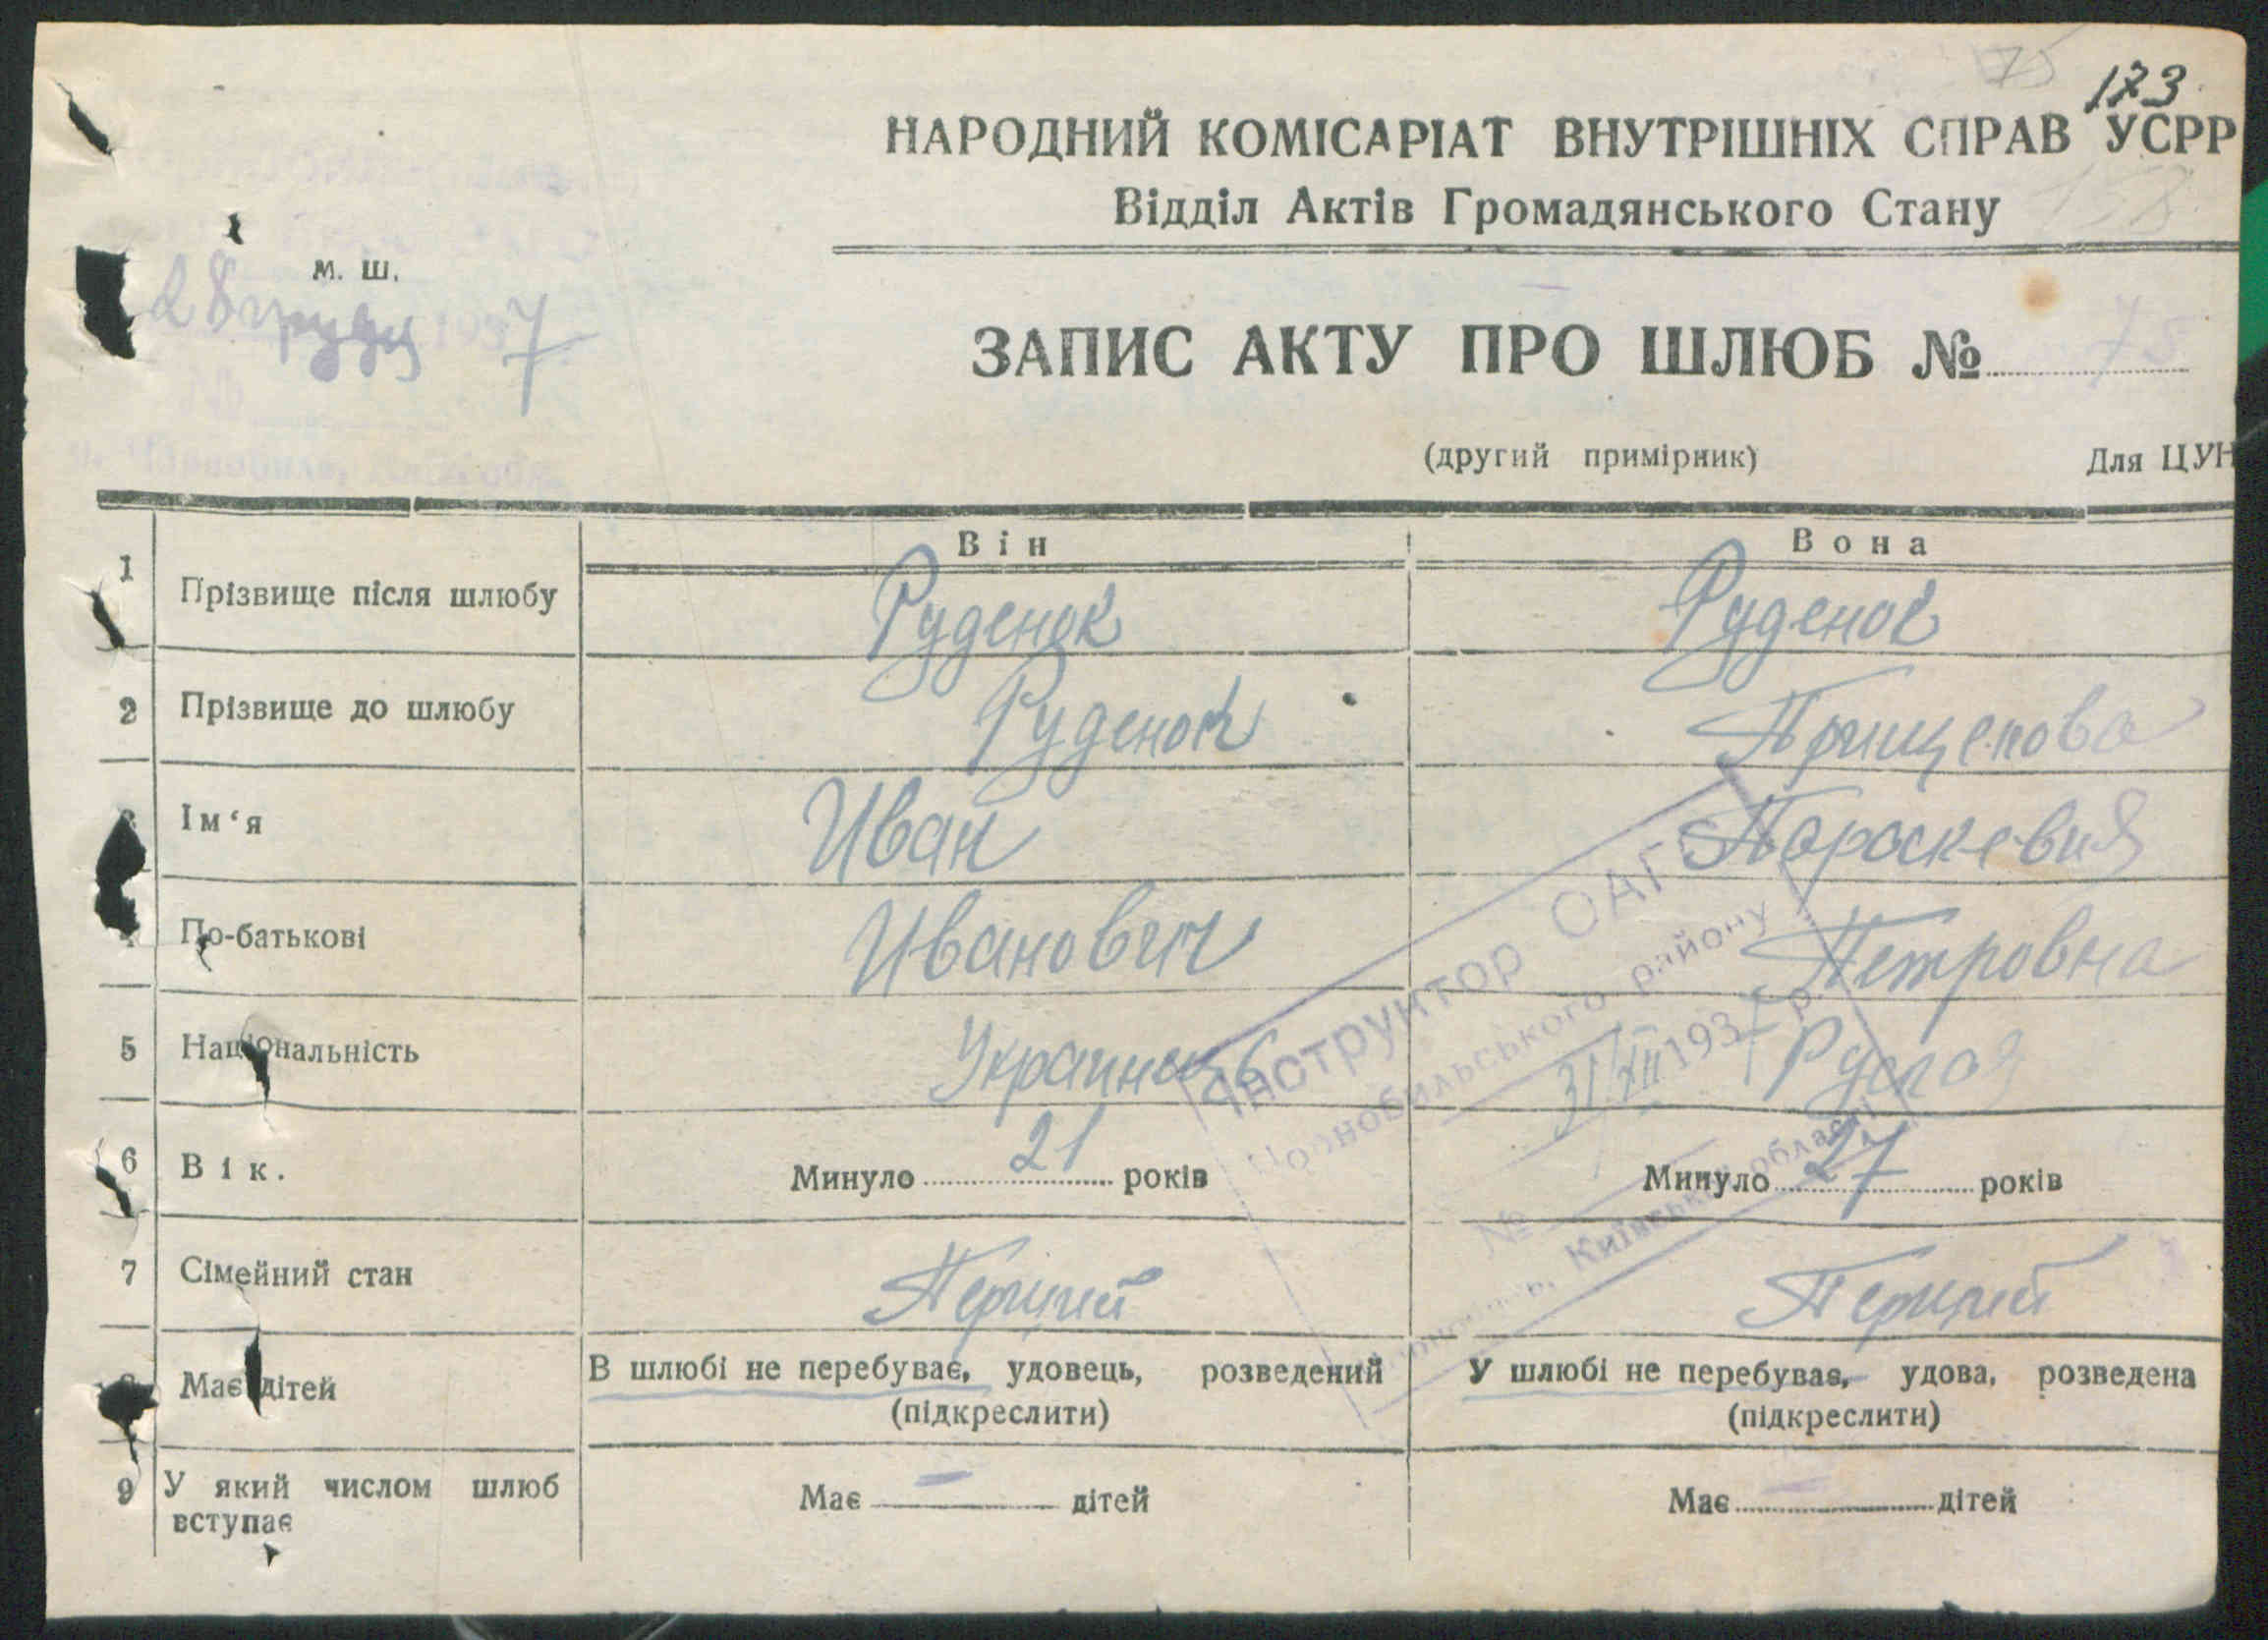 75
173
НАРОДНИЙ КОМІСАРІАТ ВНУТРІШНІХ СПРАВ УСРР
Відділ Актів Громадянського Стану
158
м. ш.
28 грудн 1937
ЗАПИС АКТУ ПРО ШЛЮБ № 75
(другий примірник) Для ЦУН
Він Вона
1 Прізвище після шлюбу Руденок Руденок
2 Прізвище до шлюбу Руденок Прищепова
Ім‘я Иван Пароскевия
По-батькові Иванович Петровна
5 Національність Украинец Руская
6 Вік. Минуло 21 років Минуло 27 років
7 Сімейний стан Перший Перший
8 Має дітей В шлюбі не перебуває, удовець, розведений У шлюбі не перебуває, удова, розведена
(підкреслити) (підкреслити)
9 У який числом шлюб вступає Має — дітей Має — дітей
Інструктор ОАГС
Чорнобильського району
31/XII 1937 р.
№
Київської області